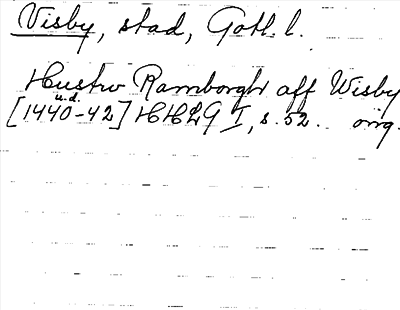 Visby, stad, Gotl. l.
Hustrv Ramborgh aff Wisby
u.d.
[1440-42] HH29 I, s. 52. orig.